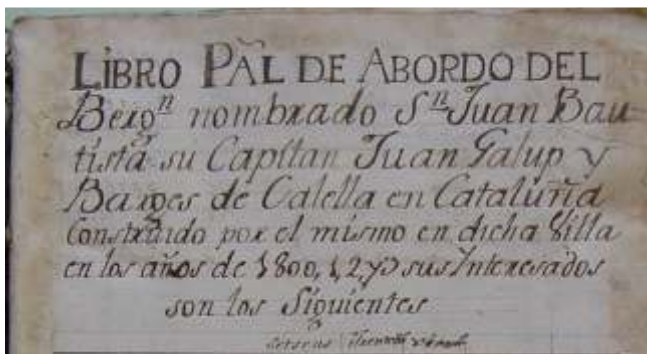 LIBRO PAL DE ABORDO DEL
Bergn nombrado Sn Juan Bau
tista su Capitan Juan Galup y
de Calella en Cataluña
Construido por el mismo en dicha Villa
en los años de 1800, 1, 2 y 3 sus Interesados
son los Siguientes